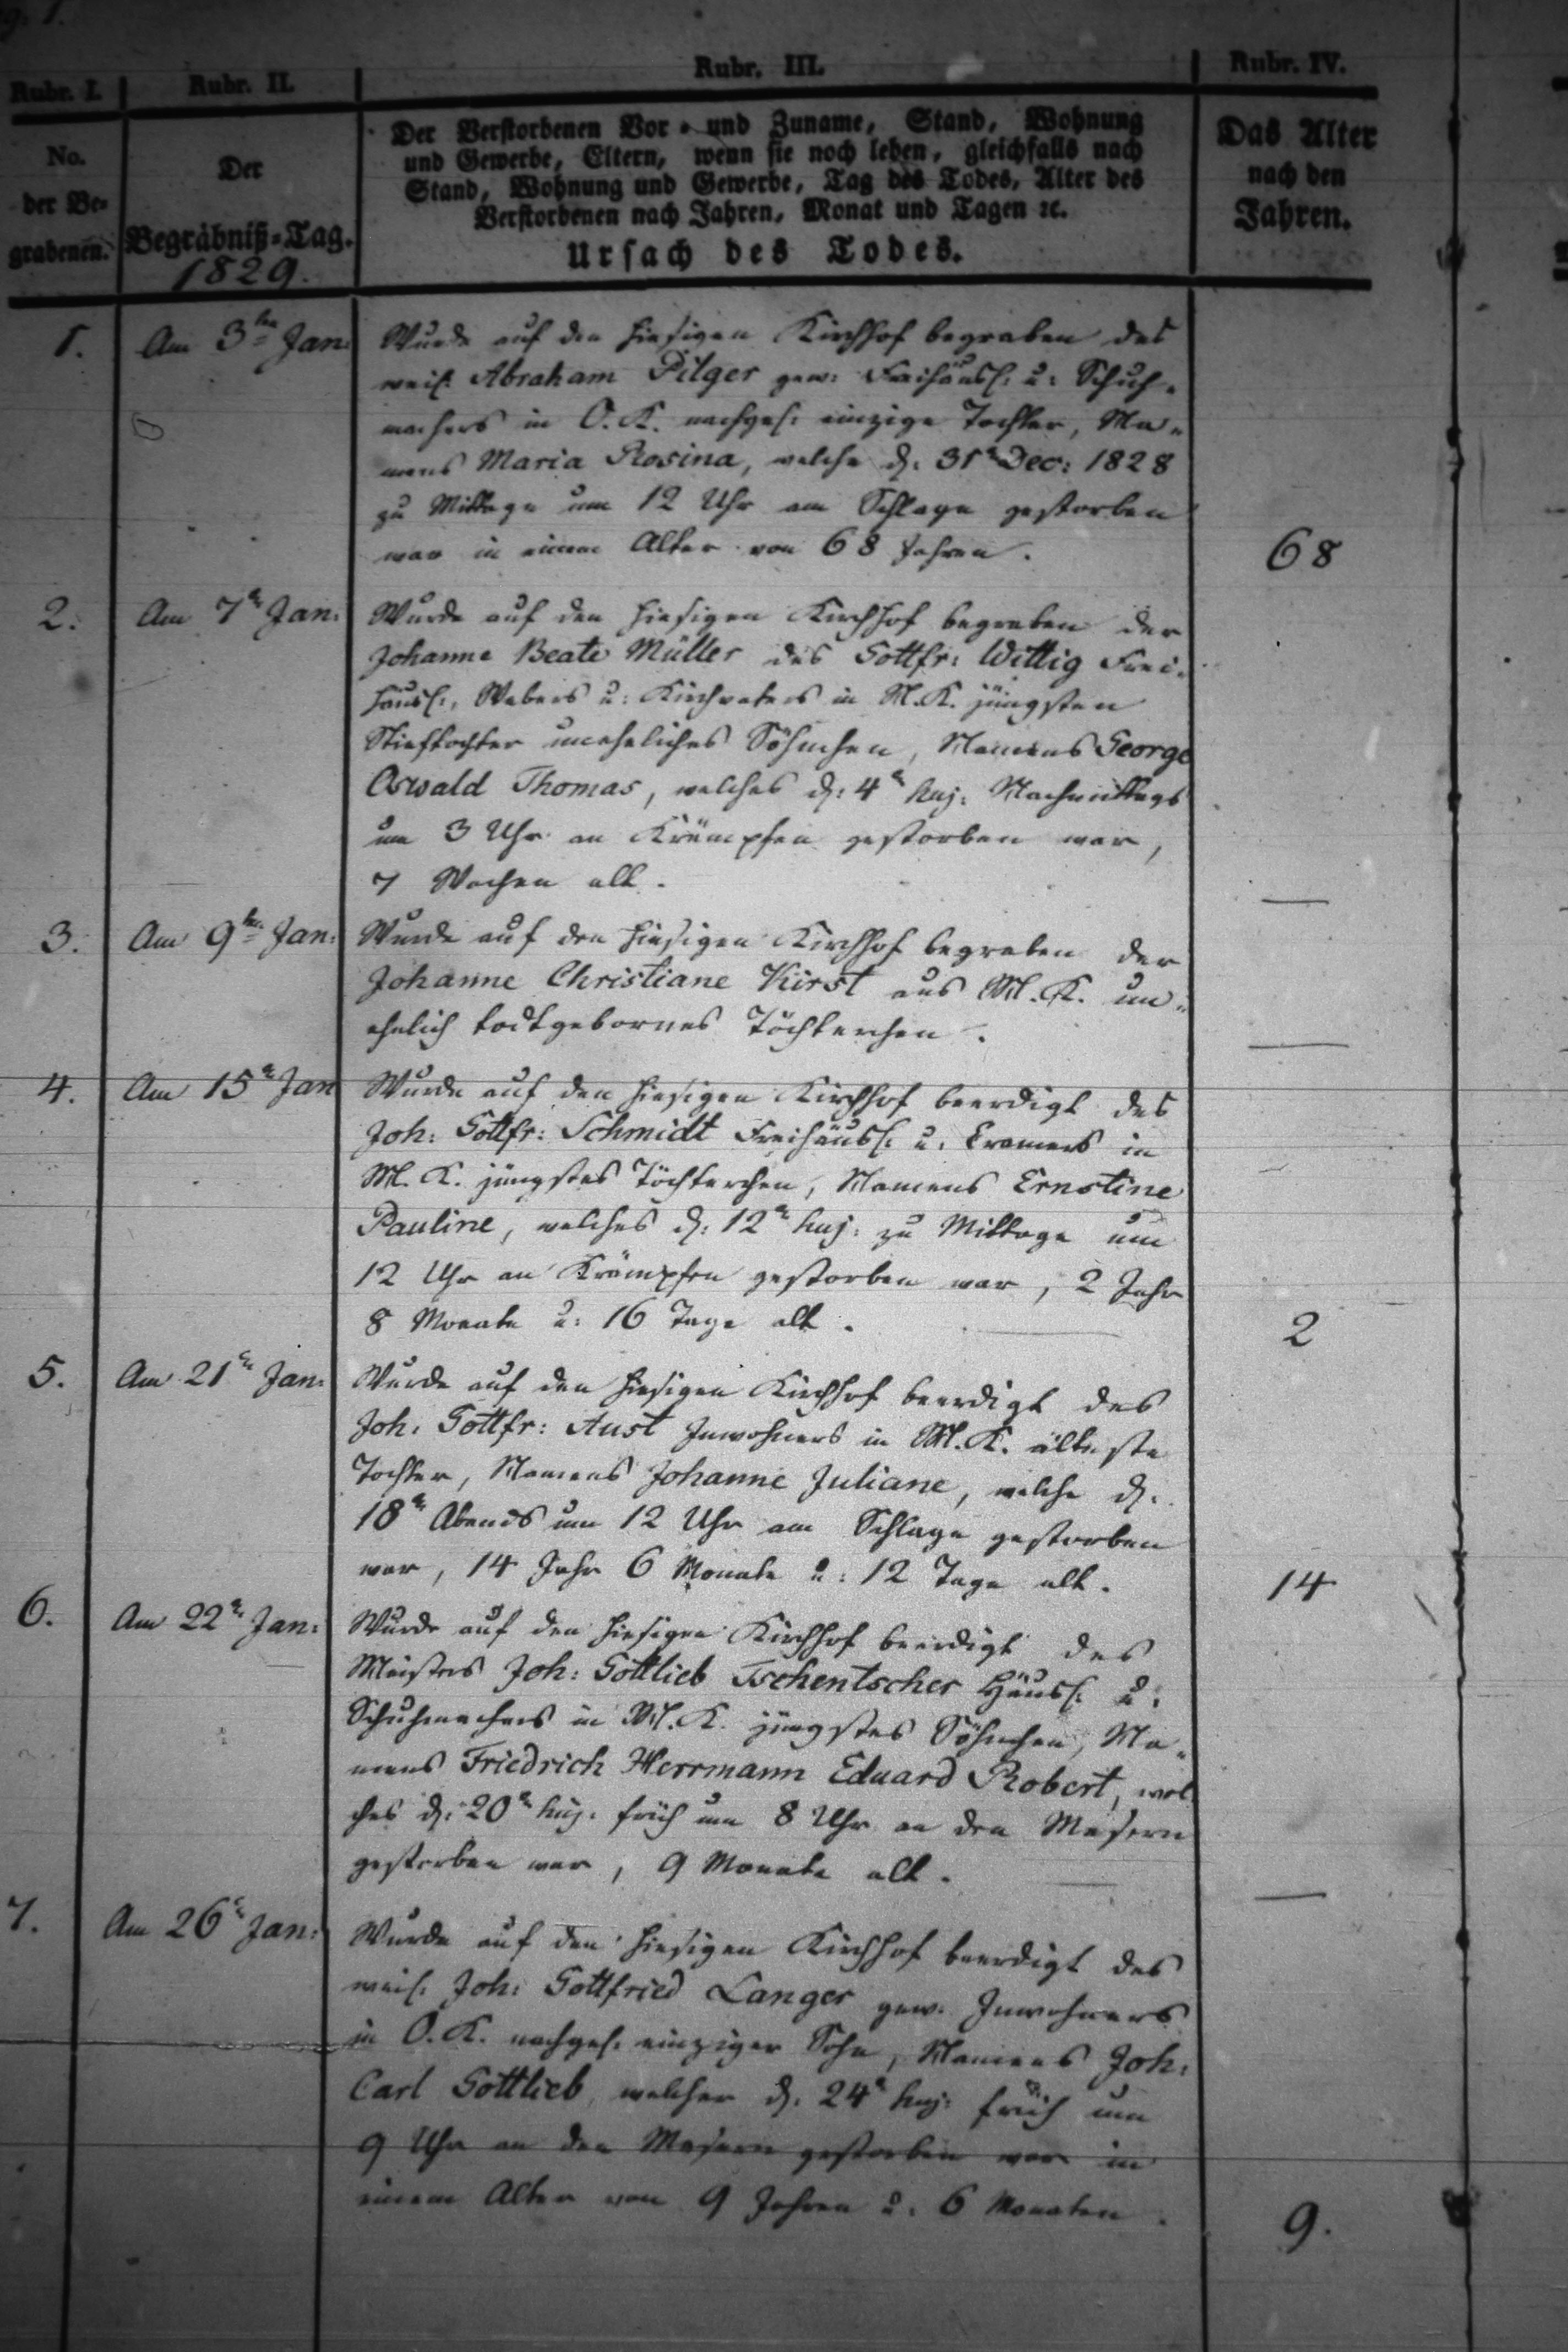 Rubr. I. Rubr. II. Rubr. III. Rubr. IV.
No.
der Be-
grabenen.
Der
Begräbniß-Tag.
1829.
Der Verstorbenen Vor- und Zuname, Stand, Wohnung
und Gewerbe, Eltern, wenn sie noch leben, gleichfalls nach
Stand, Wohnung und Gewerbe, Tag des Todes, Alter des
Verstorbenen nach Jahren, Monat und Tagen ꝛc.
Ursach des Todes.
Das Alter
nach den
Jahren.
1. Am 3ten Jan: Wurde auf den hiesigen Kirchhof begraben des
weil. Abraham Pilger gew: Freihäusl: u: Schuh-
machers in O. K. nachgel: einzige Tochter, Na-
mens Maria Rosina, welche d: 31n Dec: 1828
zu Mittage um 12 Uhr am Schlage gestorben
war in einem Alter von 68 Jahren. 68
2. Am 7n Jan: Wurde auf den hiesigen Kirchhof begraben der
Johanne Beate Müller des Gottfr: Wittig Frei-
häusl:, Webers u: Kirchvaters in M. K. jüngsten
Stieftochter uneheliches Söhnchen, Namens George
Oswald Thomas, welches d: 4n huj: Nachmittags
um 3 Uhr an Krämpfen gestorben war,
7 Wochen alt. —
3. Am 9ten Jan: Wurde auf den hiesigen Kirchhof begraben der
Johanne Christiane Kirst aus M. K. un-
ehelich todtgebornes Töchterchen. —
4. Am 15n Jan Wurde auf den hiesigen Kirchhof beerdigt des
Joh: Gottfr: Schmidt Freihäusl: u: Cramers in
M. K. jüngstes Töchterchen, Namens Ernstine
Pauline, welches d: 12n huj: zu Mittage um
12 Uhr an Krämpfen gestorben war, 2 Jahr
8 Monate u: 16 Tage alt. 2
5. Am 21n Jan: Wurde auf den hiesigen Kirchhof beerdigt des
Joh: Gottfr: Aust Inwohners in M. K. älteste
Tochter, Namens Johanne Juliane, welche d:
18n Abends um 12 Uhr am Schlage gestorben
war, 14 Jahr 6 Monate u: 12 Tage alt. 14
6. Am 22n Jan: Wurde auf den hiesigen Kirchhof beerdigt des
Meisters Joh: Gottlieb Tschentscher Häusl: u:
Schuhmachers in M. K. jüngstes Söhnchen, Na-
mens Friedrich Herrmann Eduard Robert, wel-
ches d: 20n huj: früh um 8 Uhr an den Masern
gestorben war, 9 Monate alt. —
7. Am 26n Jan: Wurde auf den hiesigen Kirchhof beerdigt des
weil: Joh: Gottfried Langer gew. Inwohners
in O. K. nachgel: einziger Sohn, Namens Joh:
Carl Gottlieb, welcher d: 24n huj: früh um
9 Uhr an den Masern gestorben war in
einem Alter von 9 Jahren u: 6 Monaten. 9.